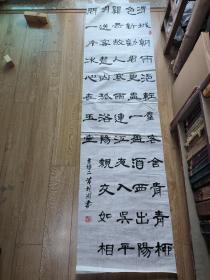 渭城朝雨浥輕塵客舍青青柳
色新勸君更盡一杯酒西出陽
關無故人寒雨連江夜入吳平
明送客楚山孤洛陽親友如相
問一片冰心在玉壺
唐詩二首